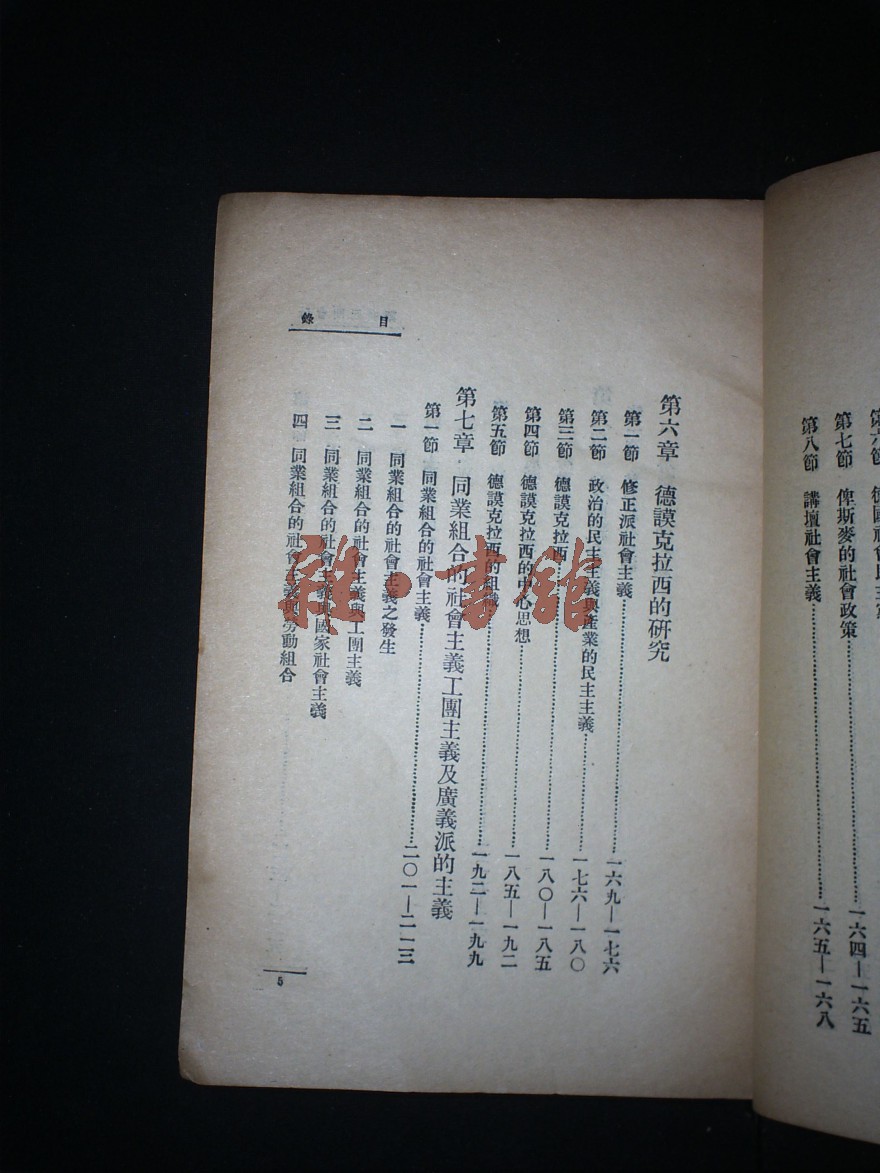 第七節 俾斯麥的社會政策……一六四—一六五
第八節 講壇社會主義……一六五—一六八
目錄
第六章 德謨克拉西的研究
第一節 修正派社會主義……一六九—一七六
第二節 政治的民主主義與產業的民主主義……一七六—一八〇
第三節 德謨克拉西……一八〇—一八五
第四節 德謨克拉西的中心思想……一八五—一九二
第五節 德謨克拉西的組織……一九二—一九九
第七章 同業組合的社會主義工團主義及廣義派的主義
第一節 同業組合的社會主義……二〇一—二一三
一 同業組合的社會主義之發生
二 同業組合的社會主義與工團主義
三 同業組合的社會主義與國家社會主義
四 同業組合的社會主義與勞動組合
5
雅·書館